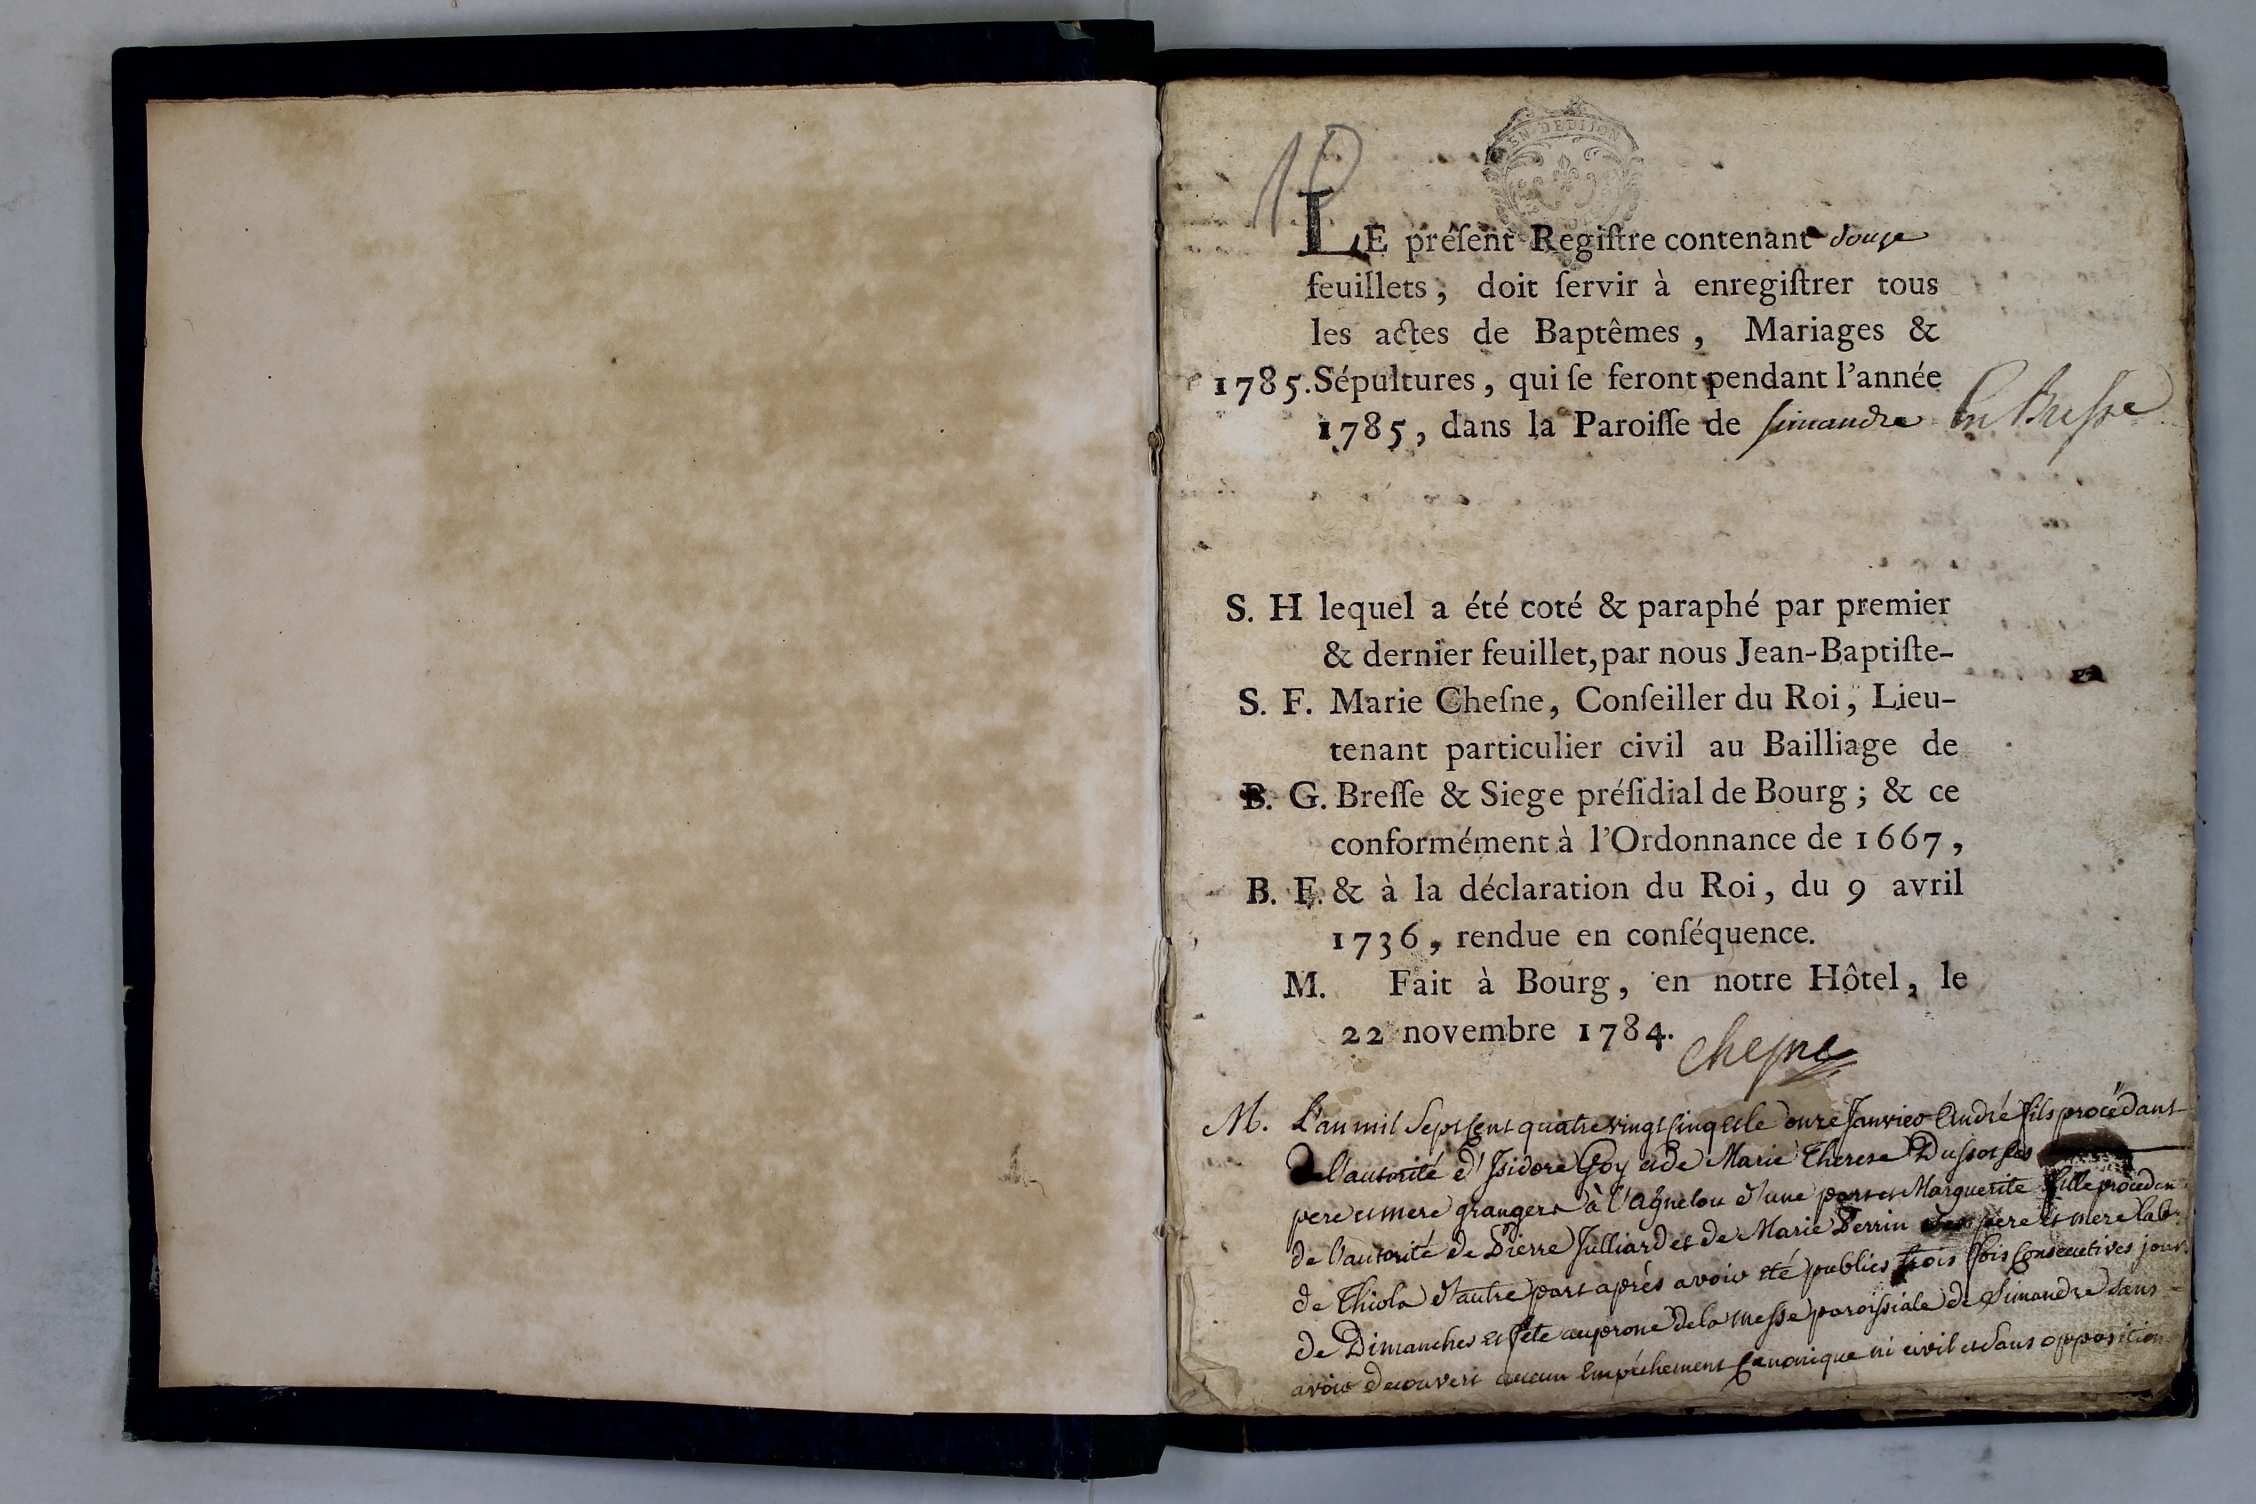 10
EN DEDIJON
LE préſent Regiſtre contenant douze
feuillets, doit ſervir à enregiſtrer tous
les actes de Baptêmes, Mariages &
1785. Sépultures, qui ſe feront pendant l'année
1785, dans la Paroiſſe de ſimandre En Breſſe
S. H lequel a été coté & paraphé par premier
& dernier feuillet, par nous Jean-Baptiſte-
S. F. Marie Cheſne, Conſeiller du Roi, Lieu-
tenant particulier civil au Bailliage de
B. G. Breſſe & Siege préſidial de Bourg; & ce
conformément à l'Ordonnance de 1667,
B. F. & à la déclaration du Roi, du 9 avril
1736, rendue en conſéquence.
M. Fait à Bourg, en notre Hôtel, le
22 novembre 1784.
Cheſne
M. L'an mil Sept Cent quatre vingt Cinq et le onze Janvier André fils procèdant
De l'autorité d'Isidore Goy et de Marie Therese Dussot ses
pere et mere grangers à l'Agnelou d'une part et Marguerite fille procedan
de l'autorité de Pierre Julliard et de Marie Perrin ses pere et mere lab.
de Thiola d'autre part après avoir été publiés trois fois Consecutives jours
de Dimanches et fête au prone de la messe paroissiale de Simandre sans
avoir decouvert aucun Empêchement Canonique ni civil et sans opposition